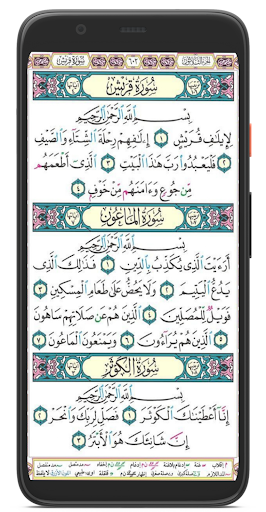 سورة قريش ٦٠٢ الجزء الثلاثون
سورة قريش
بسم الله الرحمن الرحيم
لِإِيلَٰفِ قُرَيْشٍ ١ إِۦلَٰفِهِمْ رِحْلَةَ الشِّتَآءِ وَالصَّيْفِ
٢ فَلْيَعْبُدُوا۟ رَبَّ هَٰذَا الْبَيْتِ ٣ الَّذِىٓ أَطْعَمَهُم
مِّن جُوعٍ وَءَامَنَهُم مِّنْ خَوْفٍۭ ٤
سورة الماعون
بسم الله الرحمن الرحيم
أَرَءَيْتَ الَّذِى يُكَذِّبُ بِالدِّينِ ١ فَذَٰلِكَ الَّذِى
يَدُعُّ الْيَتِيمَ ٢ وَلَا يَحُضُّ عَلَىٰ طَعَامِ الْمِسْكِينِ ٣
فَوَيْلٌ لِّلْمُصَلِّينَ ٤ الَّذِينَ هُمْ عَن صَلَاتِهِمْ سَاهُونَ
٥ الَّذِينَ هُمْ يُرَآءُونَ ٦ وَيَمْنَعُونَ الْمَاعُونَ ٧
سورة الكوثر
بسم الله الرحمن الرحيم
إِنَّآ أَعْطَيْنَٰكَ الْكَوْثَرَ ١ فَصَلِّ لِرَبِّكَ وَانْحَرْ ٢
إِنَّ شَانِئَكَ هُوَ الْأَبْتَرُ ٣